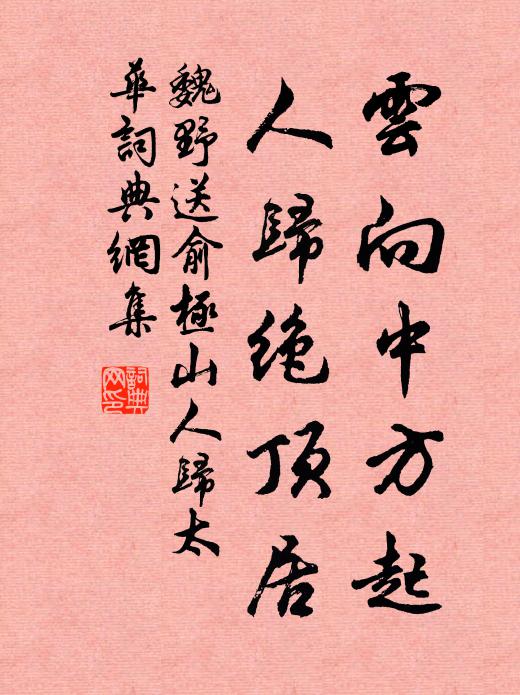 雲向中方起
人歸絶頂居
魏野送俞極山人歸太
華詞典網集
詞典
网印